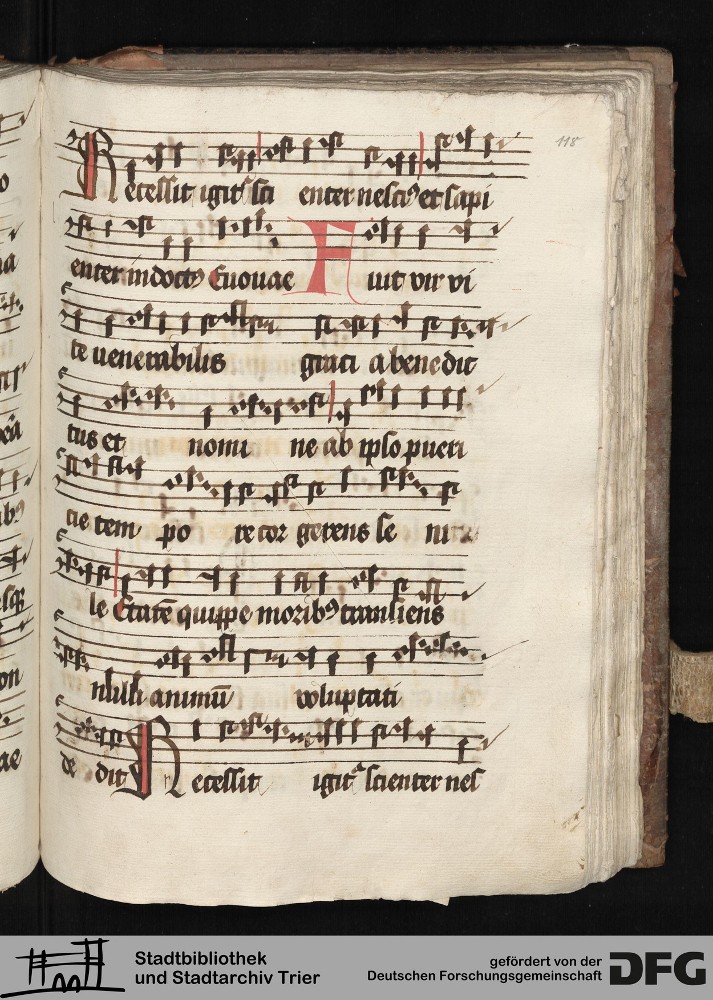 118
Recessit igit᷑ sci enter nesciꝰ et sapi
enter indoctꝰ Euouae Fuit vir vi
te venerabilis graci a bene dic
tus et nomi ne ab ipso pueri
cie tem po re cor gerens se ni
le Etatē quippe moribꝰ transiens
nulli animū voluptati
de dit Recessit igit᷑ scienter nes
Stadtbibliothek
und Stadtarchiv Trier
gefördert von der
Deutschen Forschungsgemeinschaft
DFG